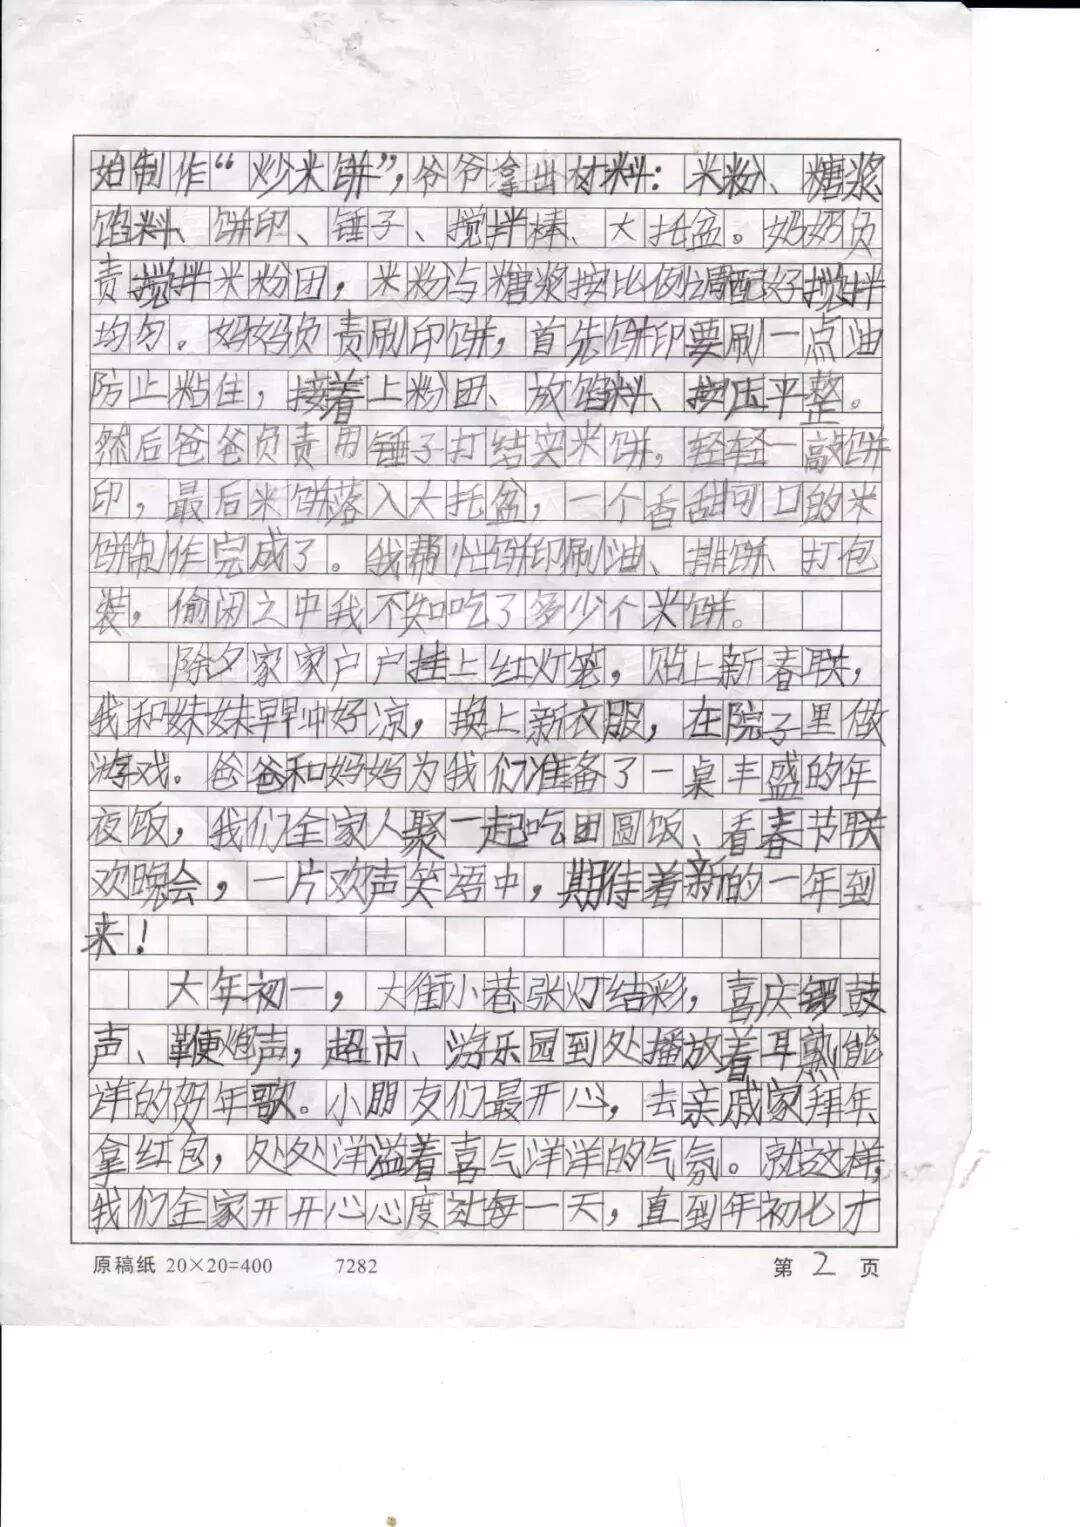 始制作“炒米饼”，爷爷拿出材料：米粉、糖浆
馅料、饼印、锤子、搅拌棒、大托盆。奶奶负
责搅拌米粉团，米粉与糖浆按比例调配好搅拌
均匀。妈妈负责刷印饼，首先饼印要刷一点油
防止粘住，接着上粉团、放馅料、按压平整。
然后爸爸负责用锤子打结实米饼，轻轻一敲饼
印，最后米饼落入大托盆，一个香甜可口的米
饼制作完成了。我帮忙饼印刷油、排饼、打包
装，偷闲之中我不知吃了多少个米饼。
除夕家家户户挂上红灯笼，贴上新春联，
我和妹妹早早冲好凉，换上新衣服，在院子里做
游戏。爸爸和妈妈为我们准备了一桌丰盛的年
夜饭，我们全家人聚一起吃团圆饭、看春节联
欢晚会，一片欢声笑语中，期待着新的一年到
来！
大年初一，大街小巷张灯结彩，喜庆锣鼓
声、鞭炮声，超市、游乐园到处播放着耳熟能
详的贺年歌。小朋友们最开心，去亲戚家拜年
拿红包，处处洋溢着喜气洋洋的气氛。就这样，
我们全家开开心心度过每一天，直到年初七才
原稿纸 20×20=400 7282 第 2 页